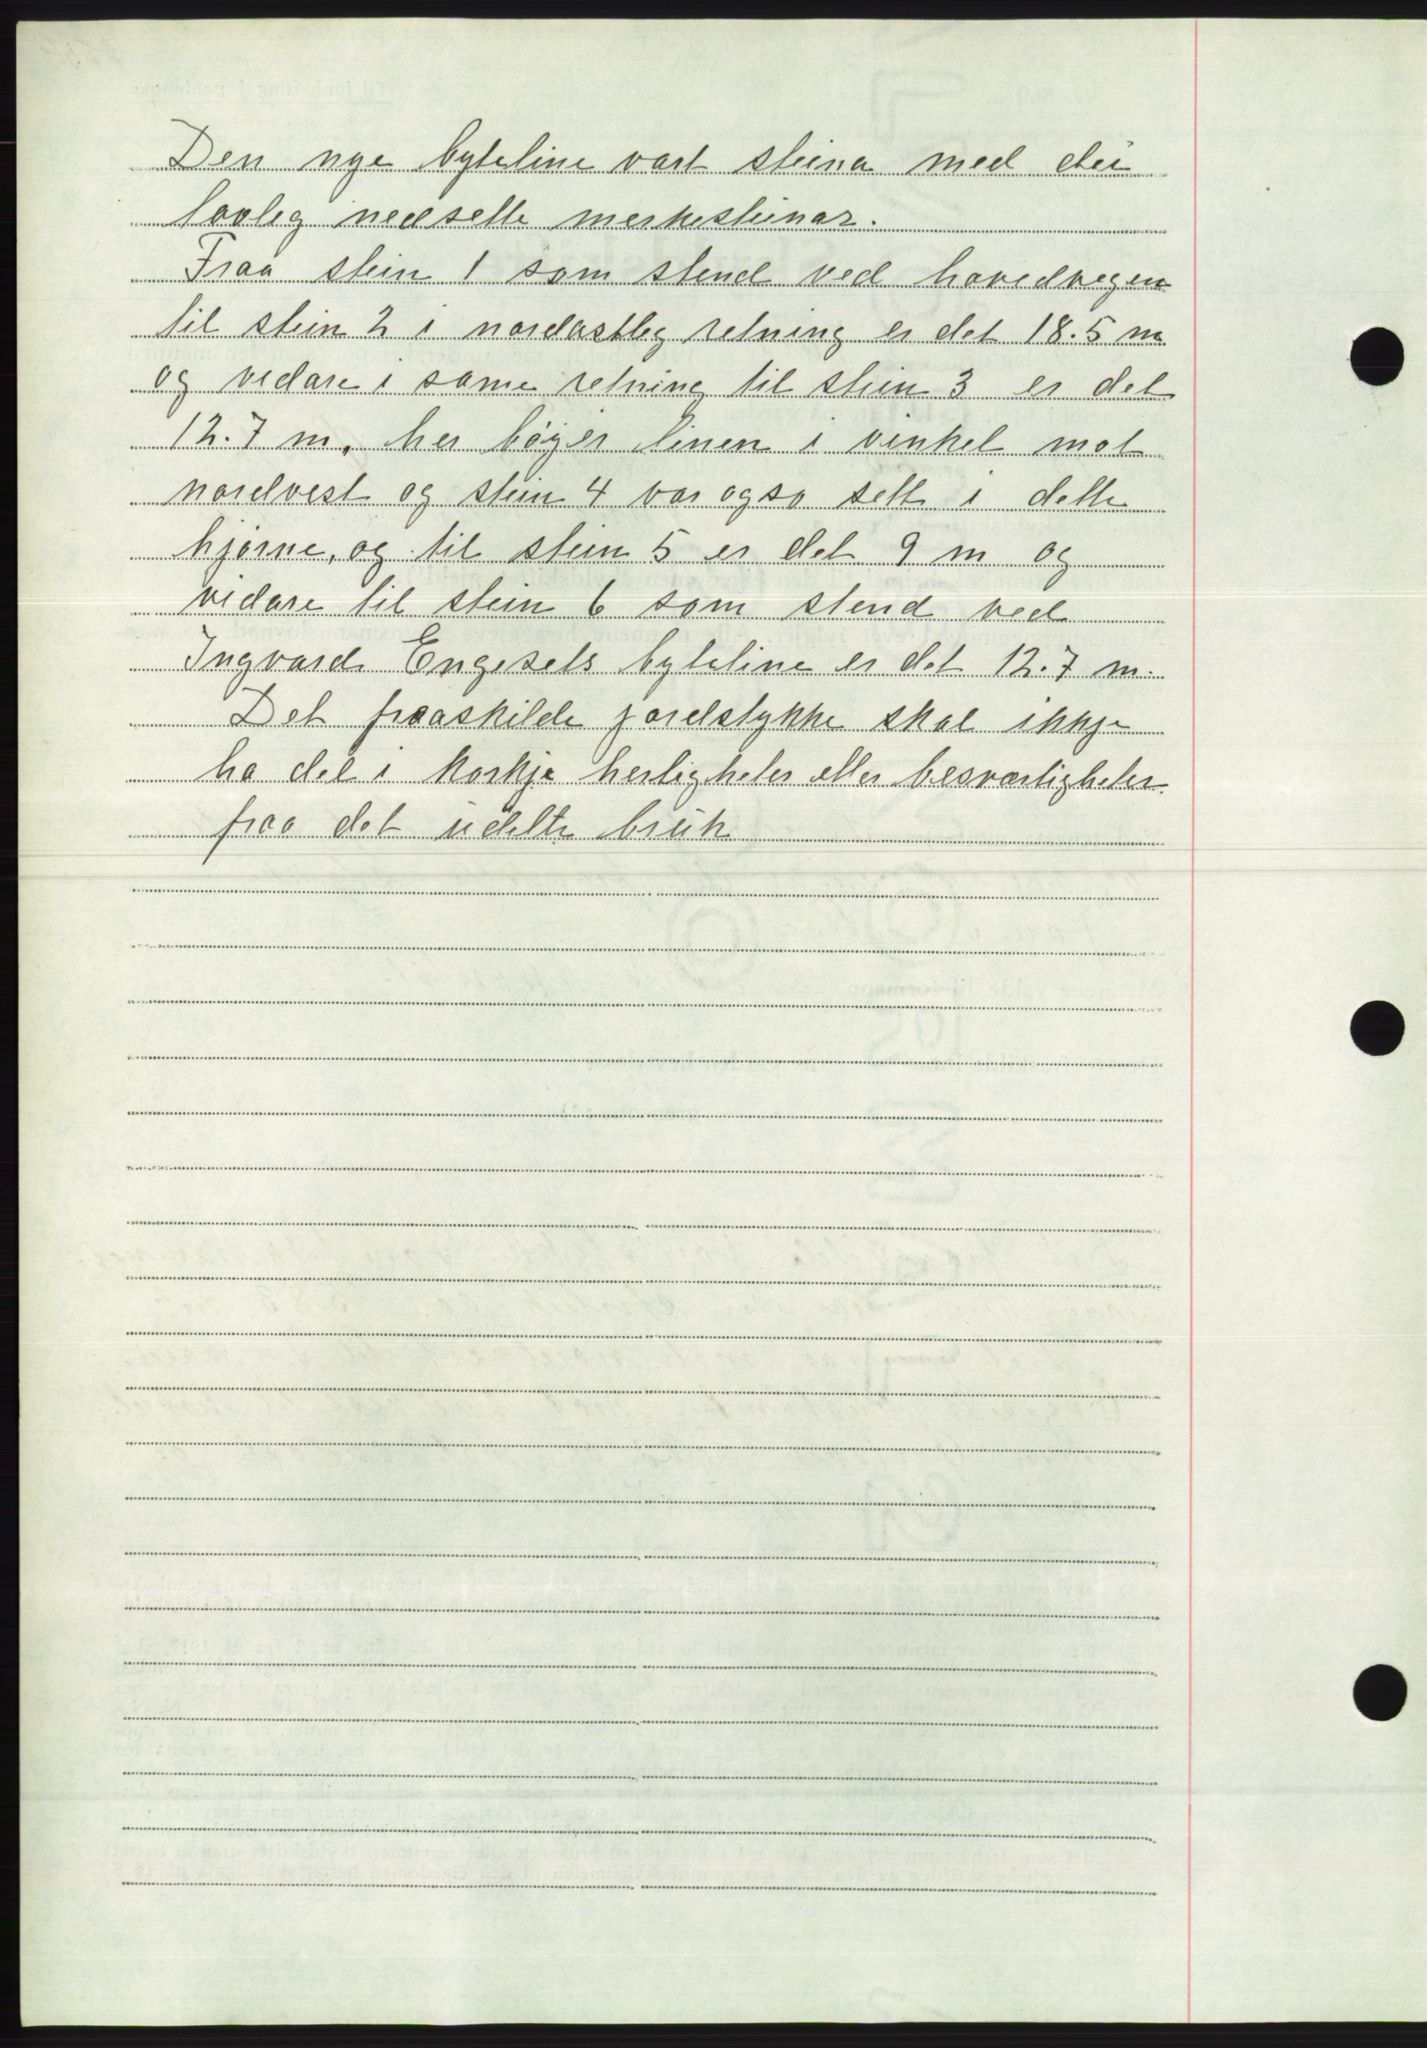 Den nye byteline vart steina med dei
lovleg nedsette merkesteinar.
Fraa stein 1 som stend ved hovedvegen
til stein 2 i nordastleg retning er det 18.5 m
og vedare i same retning til stein 3 er det
12.7 m, her bøyer linen i vinkel mot
nordvest og stein 4 var ogso sett i dette
hjørne, og til stein 5 er det 9 m og
vidare til stein 6 som stend ved
Ingvard Engesets byteline er det 12.7 m.
Det fraaskilde jordstykke skal ikkje
ha del i korkje herligheter eller besværligheter
fraa det udelte bruk